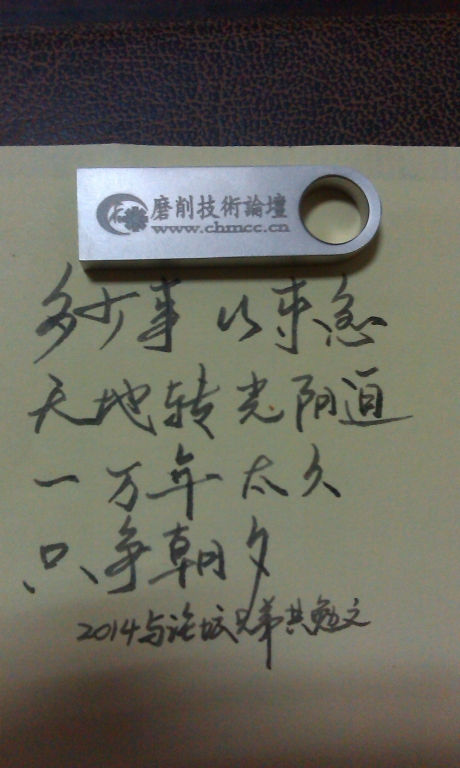 磨削技術論壇
www.chmcc.cn
多少事 从来急
天地转光阴迫
一万年太久
只争朝夕
2014与论坛兄弟共勉文